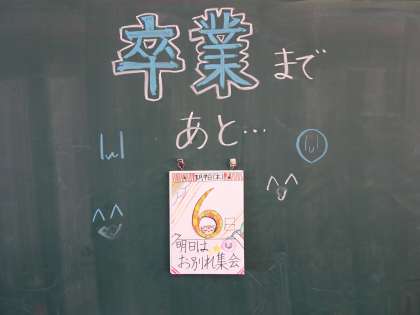 卒業まで
あと…
6日
明日は
お別れ集会